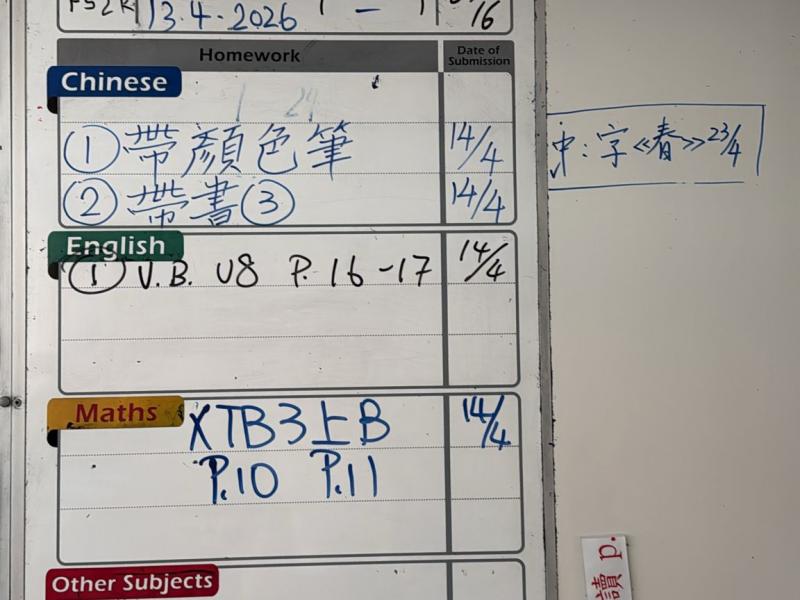 13.4.2026
16
Homework
Date of Submission
Chinese
① 帶顏色筆 14/4
② 帶書③ 14/4
中:字《春》23/4
English
① V.B. U8 P. 16-17 14/4
Maths
XTB3上B 14/4
P.10 P.11
Other Subjects
讀 p.